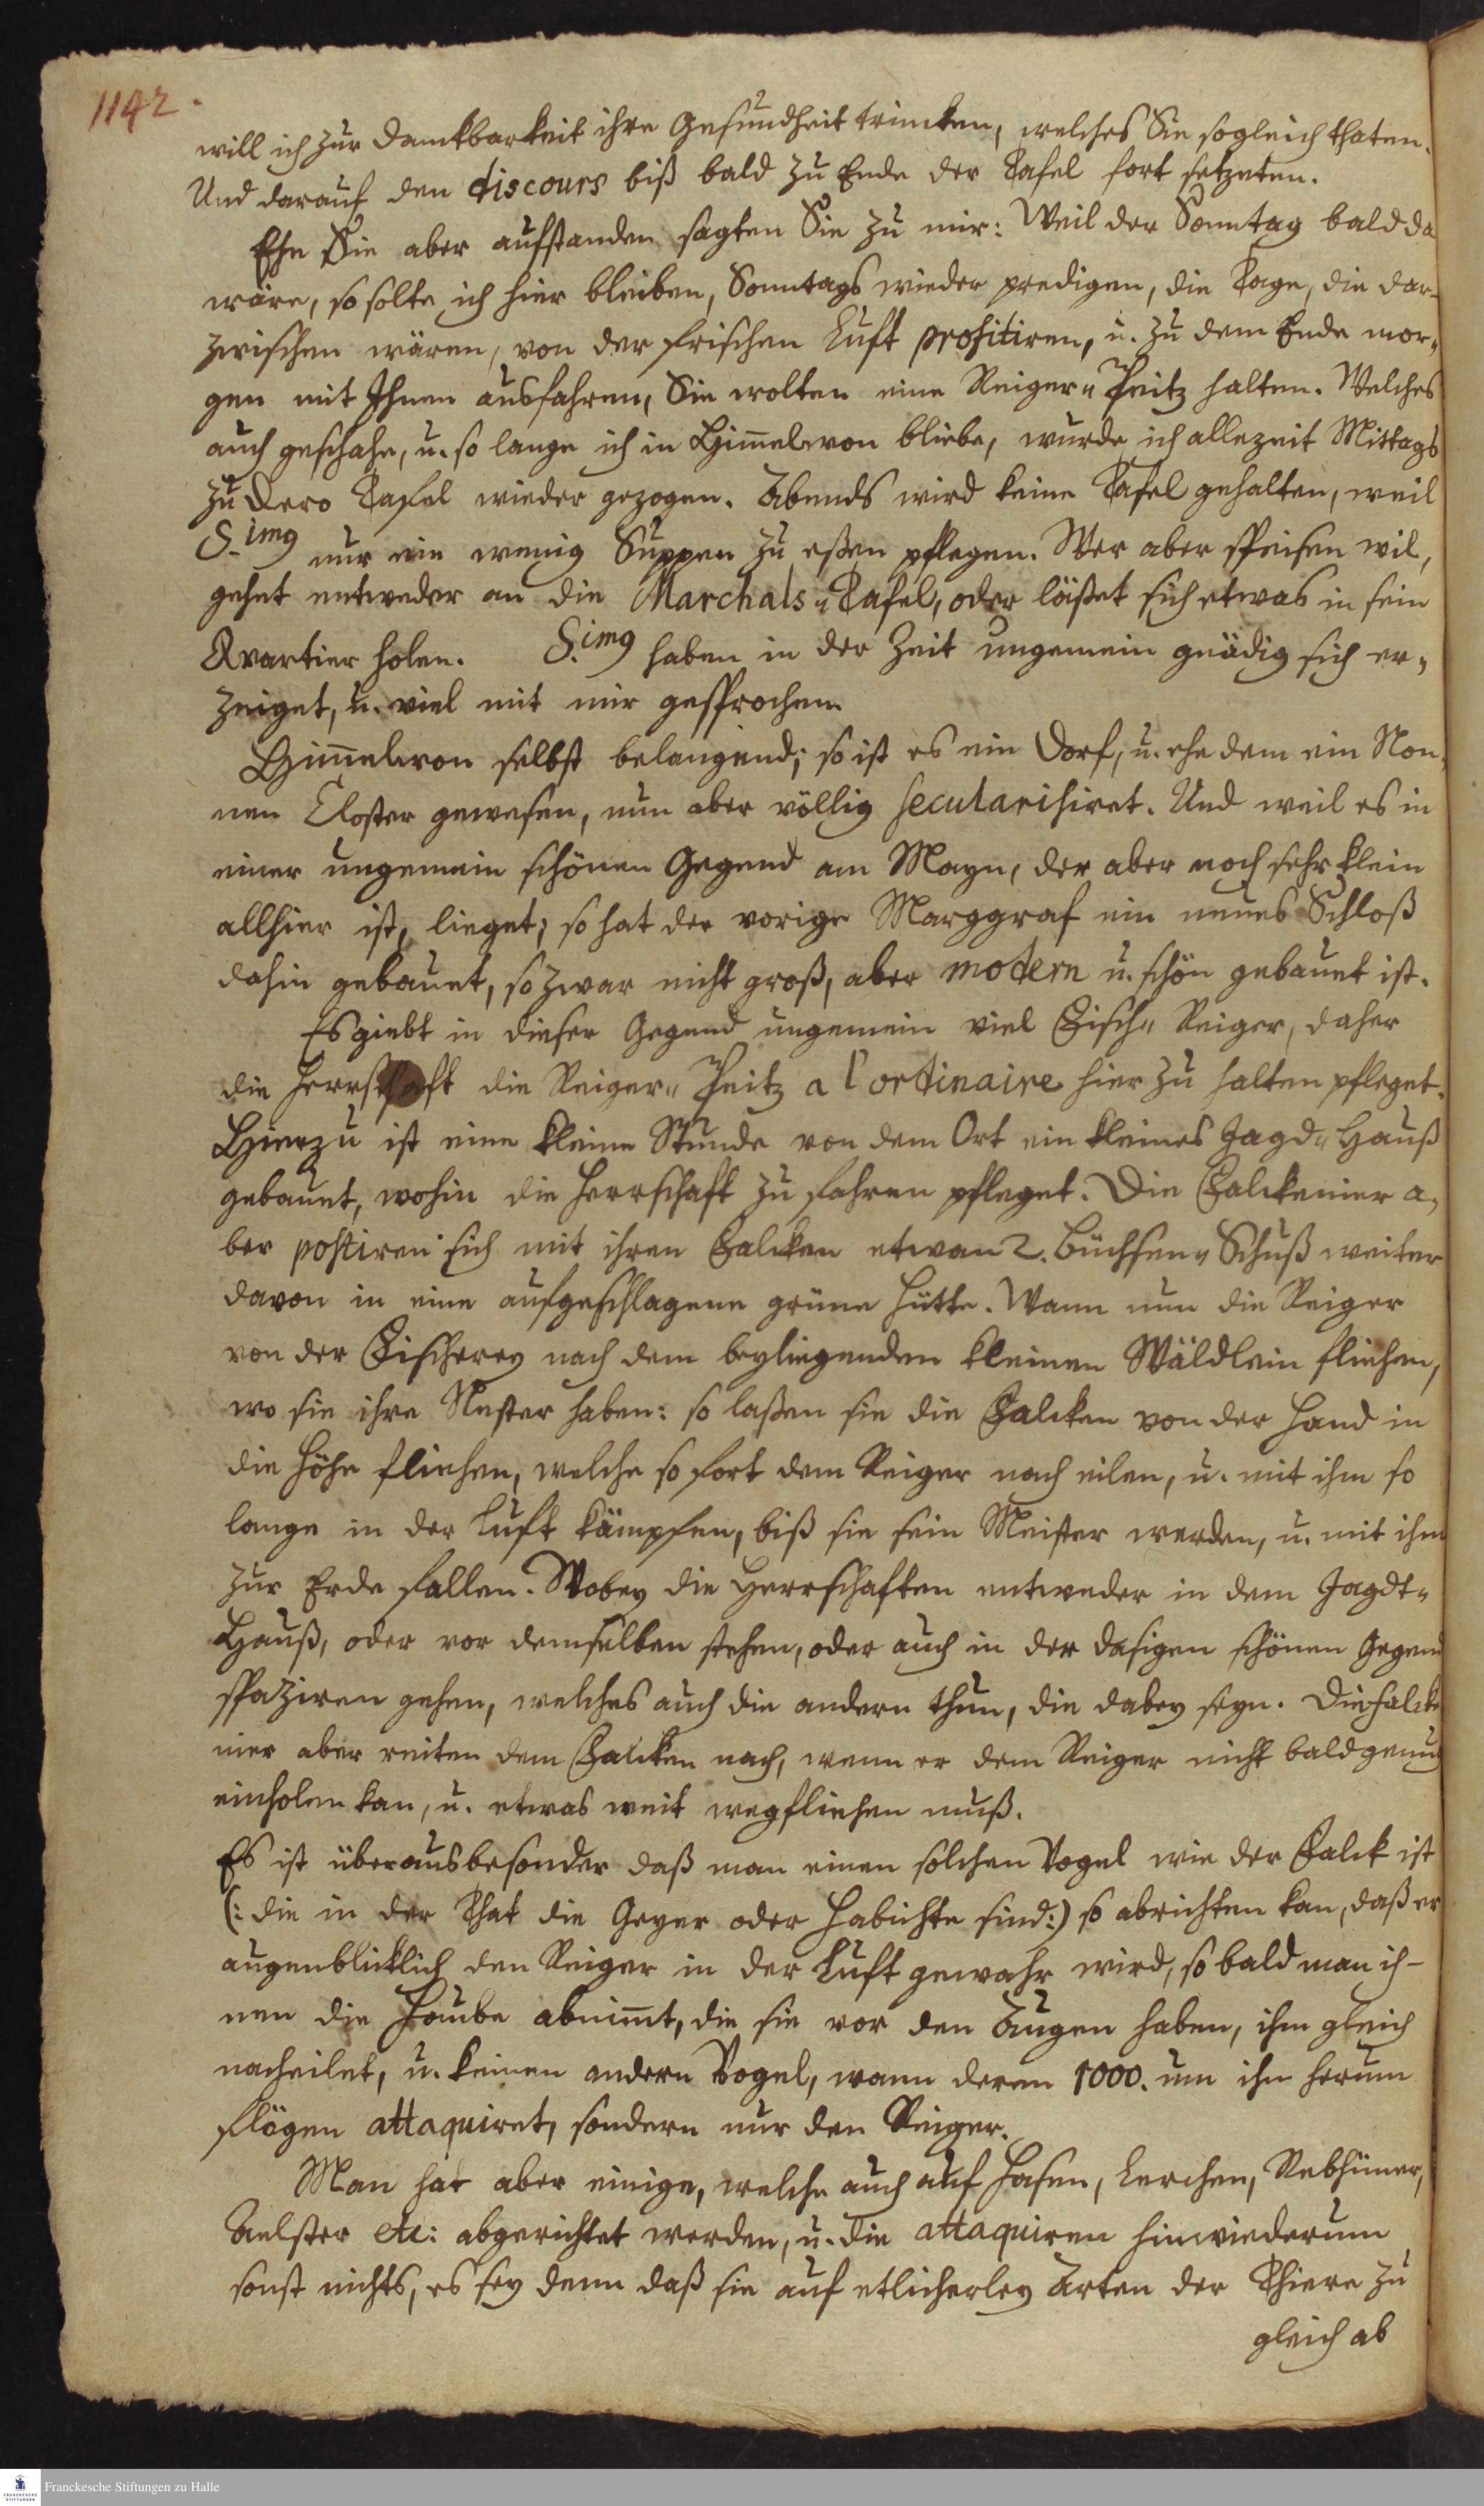 1142.
will ich zur Danckbarkeit ihre Gesundheit trincken, welches Sie sogleich thaten.
Und darauf den discours biß bald zu Ende der Tafel fort setzeten.
Ehe Sie aber aufstanden sagten Sie zu mir: Weil der Sonntag bald da
wäre, so solte ich hier bleiben, Sonntags wieder predigen, die Tage, die dar-
zwischen wären, von der frischen Luft profitiren, u. zu dem Ende mor-
gen mit Ihnen ausfahren, Sie wolten eine Reiger-Peitz halten. Welches
auch geschahe, u. so lange ich in Him̅elcron bliebe, wurde ich allezeit Mittags
zu Dero Tafel wieder gezogen. Abends wird keine Tafel gehalten, weil
S.imq nur ein wenig Suppen zu eßen pflegen. Wer aber speisen wil,
gehet entweder an die Marchals-Tafel, oder läßet sich etwas in sein
Qvartier holen. S.imq haben in der Zeit ungemein gnädig sich er-
zeiget, u. viel mit mir gesprochen.
Him̅elcron selbst belangend; so ist es ein Dorf, u. ehe dem ein Non-
nen Closter gewesen, nun aber völlig secularisiret. Und weil es in
einer ungemein schönen Gegend am Mayn, der aber noch sehr klein
allhier ist, lieget; so hat der vorige Marggraf ein neues Schloß
dahin gebauet, so zwar nicht groß, aber modern u. schön gebauet ist.
Es giebt in dieser Gegend ungemein viel Fisch-Reiger, daher
die Herrschaft die Reiger-Peitz a l'ordinaire hier zu halten pfleget.
Hierzu ist eine kleine Stunde von dem Ort ein kleines Jagd-Hauß
gebauet, wohin die Herrschaft zu fahren pfleget. Die Falckenier a-
ber postiren sich mit ihren Falcken etwan 2. Büchsen-Schuß weiter
davon in eine aufgeschlagene grüne Hütte. Wann nun die Reiger
von der Fischerey nach dem beyliegenden kleinen Wäldlein fliehen,
wo sie ihre Nester haben: so laßen sie die Falcken von der Hand in
die Höhe fliehen, welche so fort dem Reiger nach eilen, u. mit ihm so
lange in der Luft kämpfen, biß sie sein Meister werden, u. mit ihm
zur Erde fallen. Wobey die Herrschaften entweder in dem Jagdt-
Hauß, oder vor demselben stehen, oder auch in der dasigen schönen Gegend
spaziren gehen, welches auch die andern thun, die dabey seyn. Die Falcke
nier aber reiten dem Falcken nach, wenn er dem Reiger nicht bald genug
einholen kan, u. etwas weit wegfliehen muß.
Es ist überausbesonder daß man einen solchen Vogel wie der Falck ist
(: die in der That die Geyer oder Habichte sind:) so abrichten kan, daß er
augenblicklich den Reiger in der Luft gewahr wird, so bald man ih-
nen die Haube abnim̅t, die sie vor den Augen haben, ihm gleich
nacheilet, u. keinen andern Vogel, wann deren 1000. um ihn herum
flögen attaquiret, sondern nur den Reiger.
Man hat aber einige, welche auch auf Hasen, Lerchen, Rebhüner,
Aelster etc: abgerichtet werden, u. die attaquiren hinwiederum
sonst nichts, es sey denn daß sie auf etlicherley Arten der Thiere zu
gleich ab
Franckesche Stiftungen zu Halle